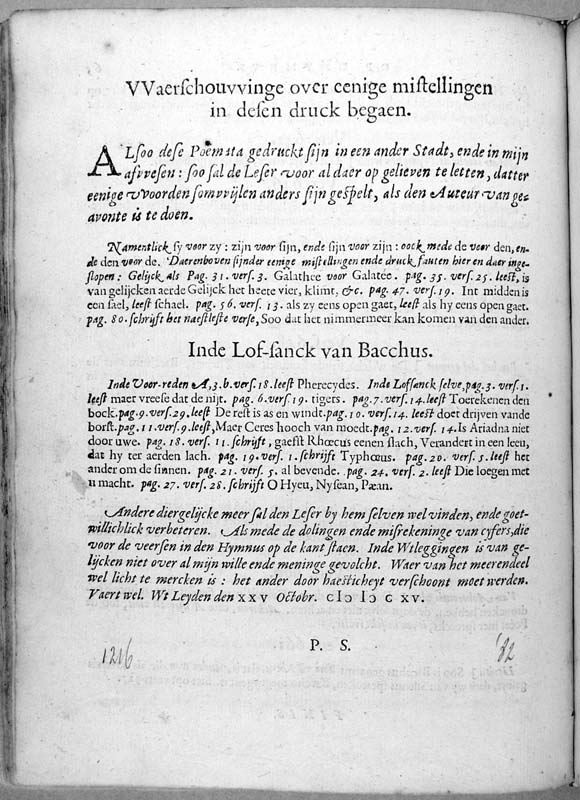 VVaerſchouvvinge over eenige miſtellingen
in deſen druck begaen.
ALſoo deſe Poëmata gedruckt ſijn in een ander Stadt, ende in mijn
afvveſen: ſoo ſal de Leſer voor al daer op gelieven te letten, datter
eenige vvoorden ſomvvijlen anders ſijn geſpelt, als den Auteur van ge-
wonte is te doen.
Namentlick ſy voor zy: zijn voor ſijn, ende ſijn voor zijn: oock mede de voor den, en-
de den voor de. Daerenboven ſijnder eenige miſtellingen ende druck fauten hier en daer inge-
ſlopen: Gelijck als Pag. 31. verſ. 3. Galathee voor Galatée. pag. 35. verſ. 25. leeſt, is
van gelijcken aerde Gelijck het heete vier, klimt, &c. pag. 47. verſ. 19. Int midden is
een ſael, leeſt ſchael. pag. 56. verſ. 13. als zy eens open gaet, leeſt als hy eens open gaet.
pag. 80. ſchrijft het naeſtleſte verſe, Soo dat het nimmermeer kan komen van den ander.
Inde Lof-ſanck van Bacchus.
Inde Voor-reden A, 3. b. verſ. 18. leeſt Pherecydes. Inde Lofſanck ſelve, pag. 3. verſ. 1.
leeſt maer vreeſe dat de nijt. pag. 6. verſ. 19. tigers. pag. 7. verſ. 14. leeſt Toerekenen den
bock. pag. 9. verſ. 29. leeſt De reſt is as en windt. pag. 10. verſ. 14. leeſt doet drijven vande
borſt. pag. 11. verſ. 9. leeſt, Maer Ceres hooch van moedt. pag. 12. verſ. 14. Is Ariadna niet
door uwe. pag. 18. verſ. 11. ſchrijft, gaeſt Rhœcus eenen ſlach, Verandert in een leeu,
dat hy ter aerden lach. pag. 19. verſ. 1. ſchrijft Typhœus. pag. 20. verſ. 5. leeſt het
ander om de ſinnen. pag. 21. verſ. 5. al bevende. pag. 24. verſ. 2. leeſt Die loegen met
u macht. pag. 27. verſ. 28. ſchrijft O Hyeu, Nyſean, Pæan.
Andere diergelijcke meer ſal den Leſer by hem ſelven wel vinden, ende goet-
willichlick verbeteren. Als mede de dolingen ende miſrekeninge van cyfers, die
voor de veerſen in den Hymnus op de kant ſtaen. Inde Wtleggingen is van ge-
lijcken niet over al mijn wille ende meninge gevolcht. Waer van het meerendeel
wel licht te mercken is: het ander door haeſticheyt verſchoont moet werden.
Vaert wel. Wt Leyden den XXV Octobr. CIↃ IↃ C XV.
P. S.
1216
'82